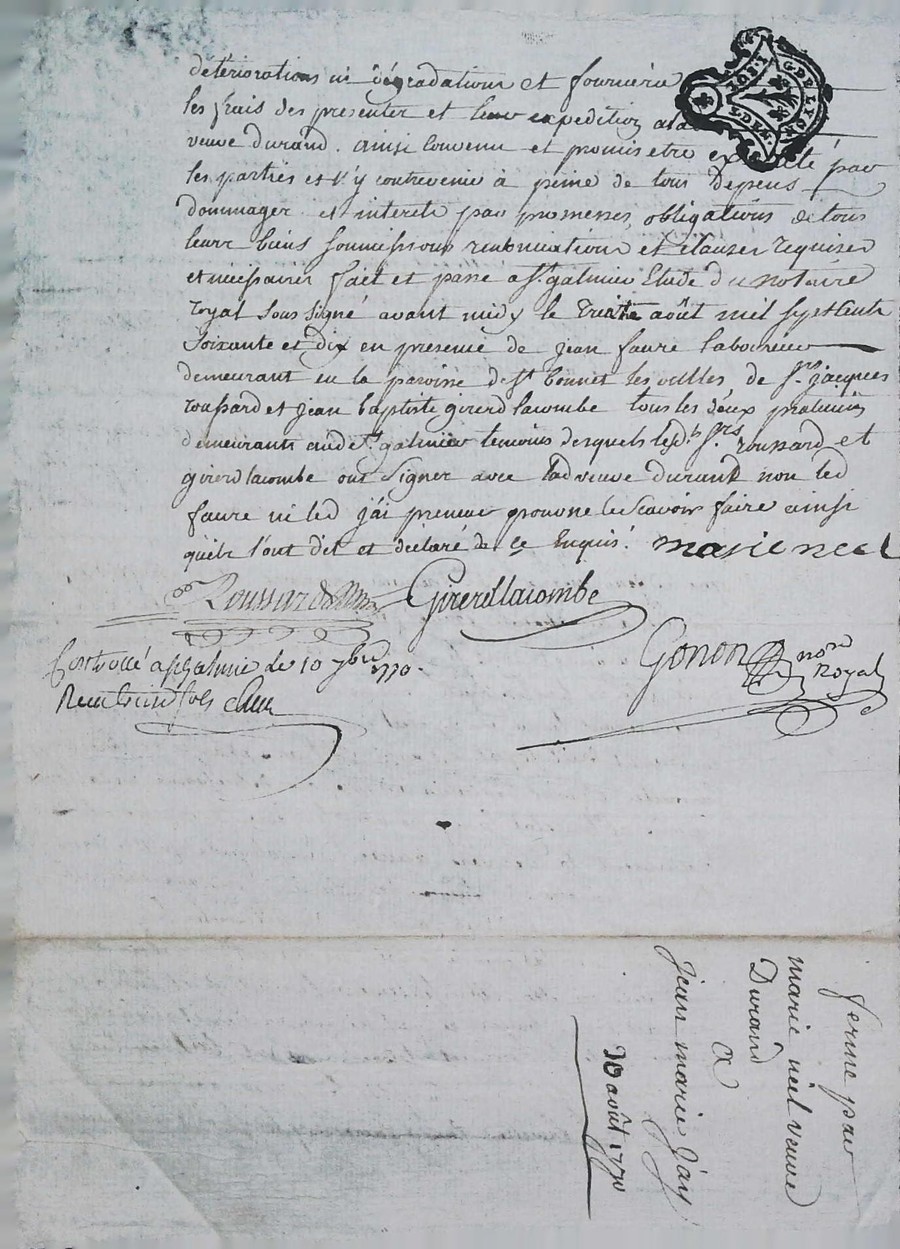 détériorations ni dégradations et fournira
les frais des presentes et leur expedition a la
veuve durand. ainsi convenu et promis etre executé par
les parties et n'y contrevenir à peine de tous depens
dommages et interets par promesses, obligations de tous
leurs biens soumissions renonciations et clauses requises
et nécessaires fait et passé a St. galmier Etude du notaire
royal sous signé avant midy le trente août mil sept cents
soixante et dix en presence de jean faure laboureur
demeurant en la paroisse de St bonnet les oulles, de Srs. jacques
roussard et jean baptiste girerd lacombe tous les deux praticiens
demeurants audt St galmier temoins desquels lesds Srs. roussard et
girerd lacombe ont signer avec lad veuve durand non led
faure ni led jaï preneur pour ne le sçavoir faire ainsi
qu'ils l'ont dit et déclaré de ce Enquis. marie neel
Roussard Girerdlacombe
Gonon non
Royal
Controllé a St galmier le 10 7bre 1770.
Reçu treize sols
ferme par
marie neel veuve
Durand
a
jean marie Jay
30 août 1770
GDE LYON